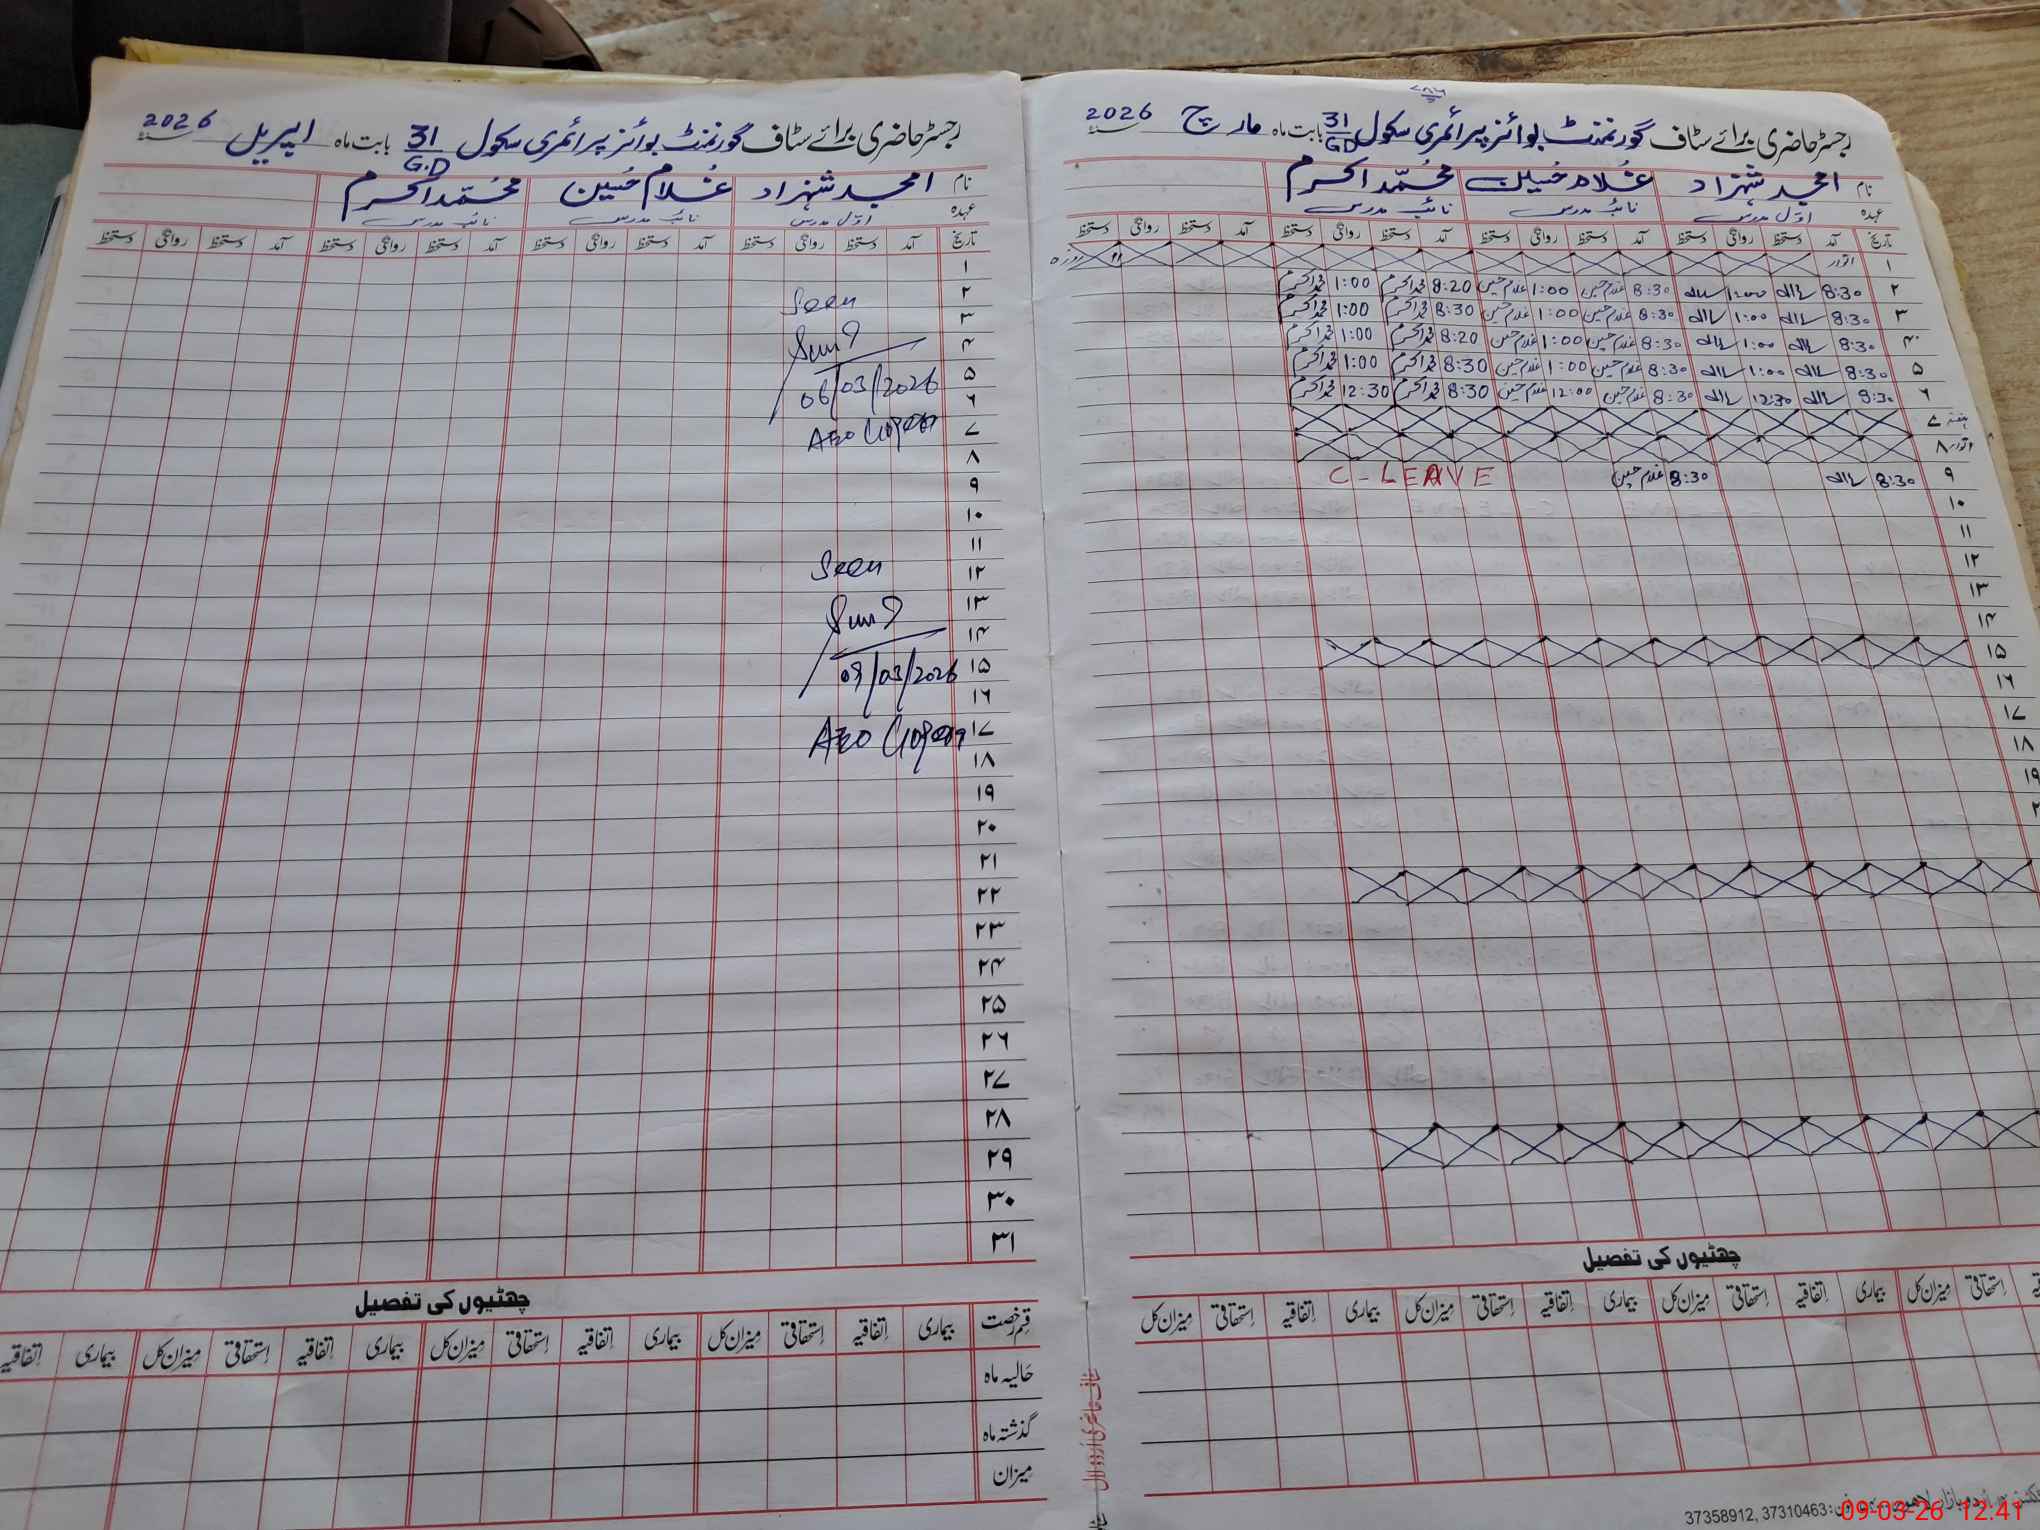 رجسٹر حاضری برائے سٹاف گورنمنٹ بوائز پرائمری سکول 31 G.D بابت ماہ مارچ 2026
نام امجد شہزاد غلام حسین محمد اکرم
عہدہ اول مدرس نائب مدرس نائب مدرس
تاریخ آمد دستخط روانگی دستخط آمد دستخط روانگی دستخط آمد دستخط روانگی دستخط آمد دستخط روانگی دستخط
۱ اتوار
۲ 8:30 1:00 8:30 غلام حسین 1:00 غلام حسین 8:20 محمد اکرم 1:00 محمد اکرم
۳ 8:30 1:00 8:30 غلام حسین 1:00 غلام حسین 8:30 محمد اکرم 1:00 محمد اکرم
۴ 8:30 1:00 8:30 غلام حسین 1:00 غلام حسین 8:20 محمد اکرم 1:00 محمد اکرم
۵ 8:30 1:00 8:30 غلام حسین 1:00 غلام حسین 8:30 محمد اکرم 1:00 محمد اکرم
۶ 8:30 12:30 8:30 غلام حسین 12:00 غلام حسین 8:30 محمد اکرم 12:30 محمد اکرم
۷ ہفتہ
۸ اتوار
۹ 8:30 8:30 غلام حسین C-LEAVE
۱۰
۱۱
۱۲
۱۳
۱۴
۱۵
۱۶
۱۷
۱۸
۱۹
چھٹیوں کی تفصیل
استحقاقی میزان کل بیماری اتفاقیہ استحقاقی میزان کل بیماری اتفاقیہ استحقاقی میزان کل بیماری اتفاقیہ استحقاقی میزان کل
37358912, 37310463
رجسٹر حاضری برائے سٹاف گورنمنٹ بوائز پرائمری سکول 31 G.D بابت ماہ اپریل 2026
نام امجد شہزاد غلام حسین محمد اکرم
عہدہ اول مدرس نائب مدرس نائب مدرس
تاریخ آمد دستخط روانگی دستخط آمد دستخط روانگی دستخط آمد دستخط روانگی دستخط آمد دستخط روانگی دستخط
۱
۲ Seen
۳
۴
۵ 06/03/2026
۶
۷ AEO
۸
۹
۱۰
۱۱
۱۲ Seen
۱۳
۱۴
۱۵ 09/03/2026
۱۶
۱۷ AEO
۱۸
۱۹
۲۰
۲۱
۲۲
۲۳
۲۴
۲۵
۲۶
۲۷
۲۸
۲۹
۳۰
۳۱
چھٹیوں کی تفصیل
قسم رخصت بیماری اتفاقیہ استحقاقی میزان کل بیماری اتفاقیہ استحقاقی میزان کل بیماری اتفاقیہ استحقاقی میزان کل بیماری اتفاقیہ
حالیہ ماہ
گذشتہ ماہ
میزان
09-03-26 12:41